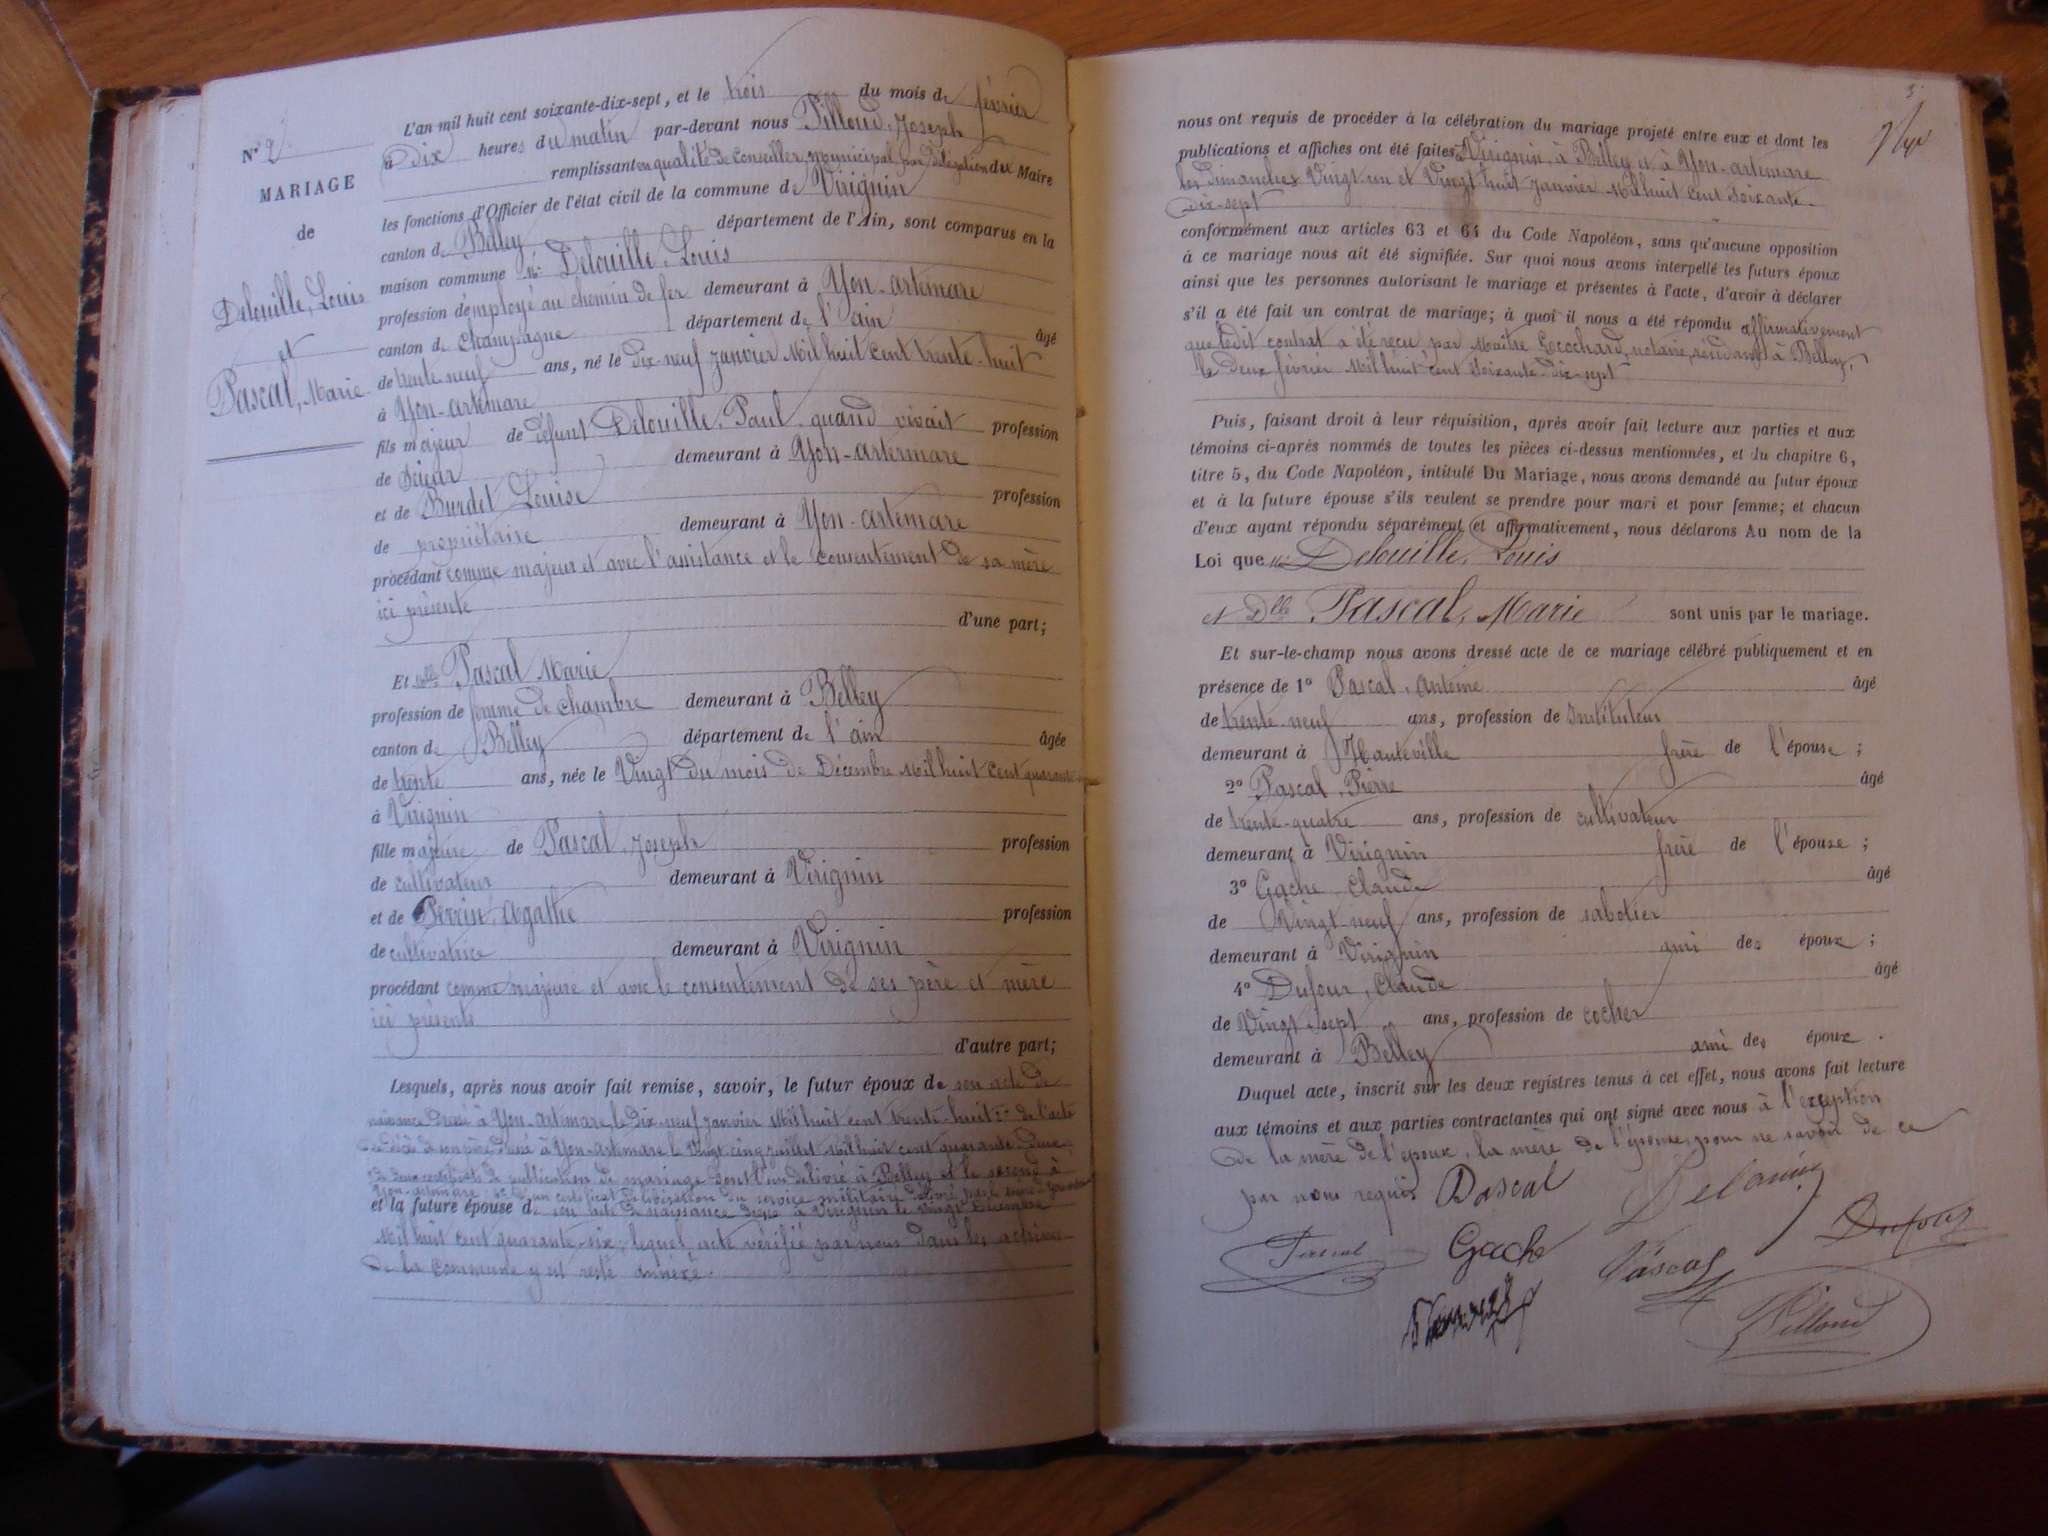 N° 2
MARIAGE
de
Delouille, Louis
et
Pascal, Marie
L'an mil huit cent soixante-dix-sept, et le trois du mois de février
à Dix heures du matin par-devant nous Pilloud, Joseph
remplissant en qualité de Conseiller Municipal par délégation du Maire
les fonctions d'Officier de l'état civil de la commune de Virignin
canton de Belley département de l'Ain, sont comparus en la
maison commune Mr Delouille, Louis
profession d'employé au chemin de fer demeurant à Yon-artemare
canton de Champagne département de l'ain âgé
de trente neuf ans, né le dix neuf janvier Mil huit cent trente-huit
à Yon-artemare
fils majeur de défunt Delouille, Paul, quand vivait profession
de Scieur demeurant à Yon-artermare
et de Burdet Louise profession
de propriétaire demeurant à Yon-artemare
procédant comme majeur et avec l'assistance et le consentement de sa mère
ici présente
d'une part;
Et Melle Pascal Marie
profession de femme de chambre demeurant à Belley
canton de Belley département de l'ain âgée
de trente ans, née le Vingt du mois de Décembre Mil huit cent quarante
à Virignin
fille majeure de Pascal, Joseph profession
de cultivateur demeurant à Virignin
et de Perrin, Agathe profession
de cultivatrice demeurant à Virignin
procédant comme majeure et avec le consentement de ses père et mère
ici présents
d'autre part;
Lesquels, après nous avoir fait remise, savoir, le futur époux de son acte de
naissance dressé à Yon-artemare, le dix-neuf janvier Mil huit cent trente-huit; de l'acte
de décès de son père dressé à Yon-Artemare le Vingt cinq juillet Mil huit cent quarante deux
deux certificats de publication de mariage dont l'un délivré à Belley et le second à
Yon-artemare un certificat de libération du service militaire délivré
et la future épouse de son acte de naissance dressé à Virignin le vingt Décembre
Mil huit cent quarante-six; lequel acte vérifié par nous dans les archives
de la Commune y est resté annexé.
3
nous ont requis de procéder à la célébration du mariage projeté entre eux et dont les
publications et affiches ont été faites à Virignin, à Belley et à Yon-artemare
les dimanches Vingt-un et Vingt-huit janvier Mil huit cent soixante-
dix-sept
conformément aux articles 63 et 64 du Code Napoléon, sans qu'aucune opposition
à ce mariage nous ait été signifiée. Sur quoi nous avons interpellé les futurs époux
ainsi que les personnes autorisant le mariage et présentes à l'acte, d'avoir à déclarer
s'il a été fait un contrat de mariage; à quoi il nous a été répondu affirmativement
que ledit contrat a été reçu par Maître Cocochard, notaire, résidant à Belley,
le deux février Mil huit cent soixante-dix-sept
Puis, faisant droit à leur réquisition, après avoir fait lecture aux parties et aux
témoins ci-après nommés de toutes les pièces ci-dessus mentionnées, et du chapitre 6,
titre 5, du Code Napoléon, intitulé Du Mariage, nous avons demandé au futur époux
et à la future épouse s'ils veulent se prendre pour mari et pour femme; et chacun
d'eux ayant répondu séparément et affirmativement, nous déclarons Au nom de la
Loi que Mr Delouille, Louis
et Dlle Pascal, Marie sont unis par le mariage.
Et sur-le-champ nous avons dressé acte de ce mariage célébré publiquement et en
présence de 1° Pascal, Antoine âgé
de trente-neuf ans, profession de Instituteur
demeurant à Hauteville frère de l'épouse;
2° Pascal, Pierre âgé
de trente-quatre ans, profession de cultivateur
demeurant à Virignin frère de l'épouse;
3° Gache, Claude âgé
de Vingt neuf ans, profession de sabotier
demeurant à Virignin ami des époux;
4° Dufour, Claude âgé
de Vingt-sept ans, profession de cocher
demeurant à Belley ami des époux.
Duquel acte, inscrit sur les deux registres tenus à cet effet, nous avons fait lecture
aux témoins et aux parties contractantes qui ont signé avec nous à l'exception
de la mère de l'époux, la mère de l'épouse, pour ne savoir de ce
par nous requis Pascal
Pascal Gache Pascal Dufour
Pilloud